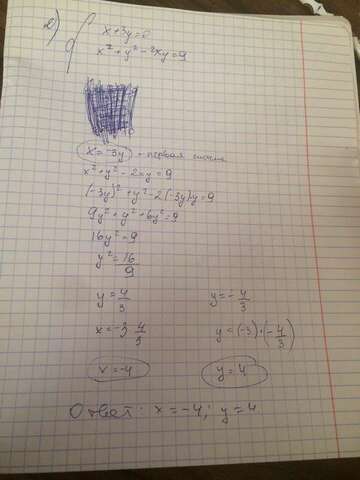 2) { x+3y=0
x²+y²-2xy=9
x=-3y - первая
x²+y²-2xy=9
(-3y)²+y²-2(-3y)y=9
9y²+y²+6y²=9
16y²=9
y²=16/9
y=4/3 y=-4/3
x=-3 4/3 y=(-3)·(-4/3)
x=-4 y=4
Ответ: x=-4; y=4